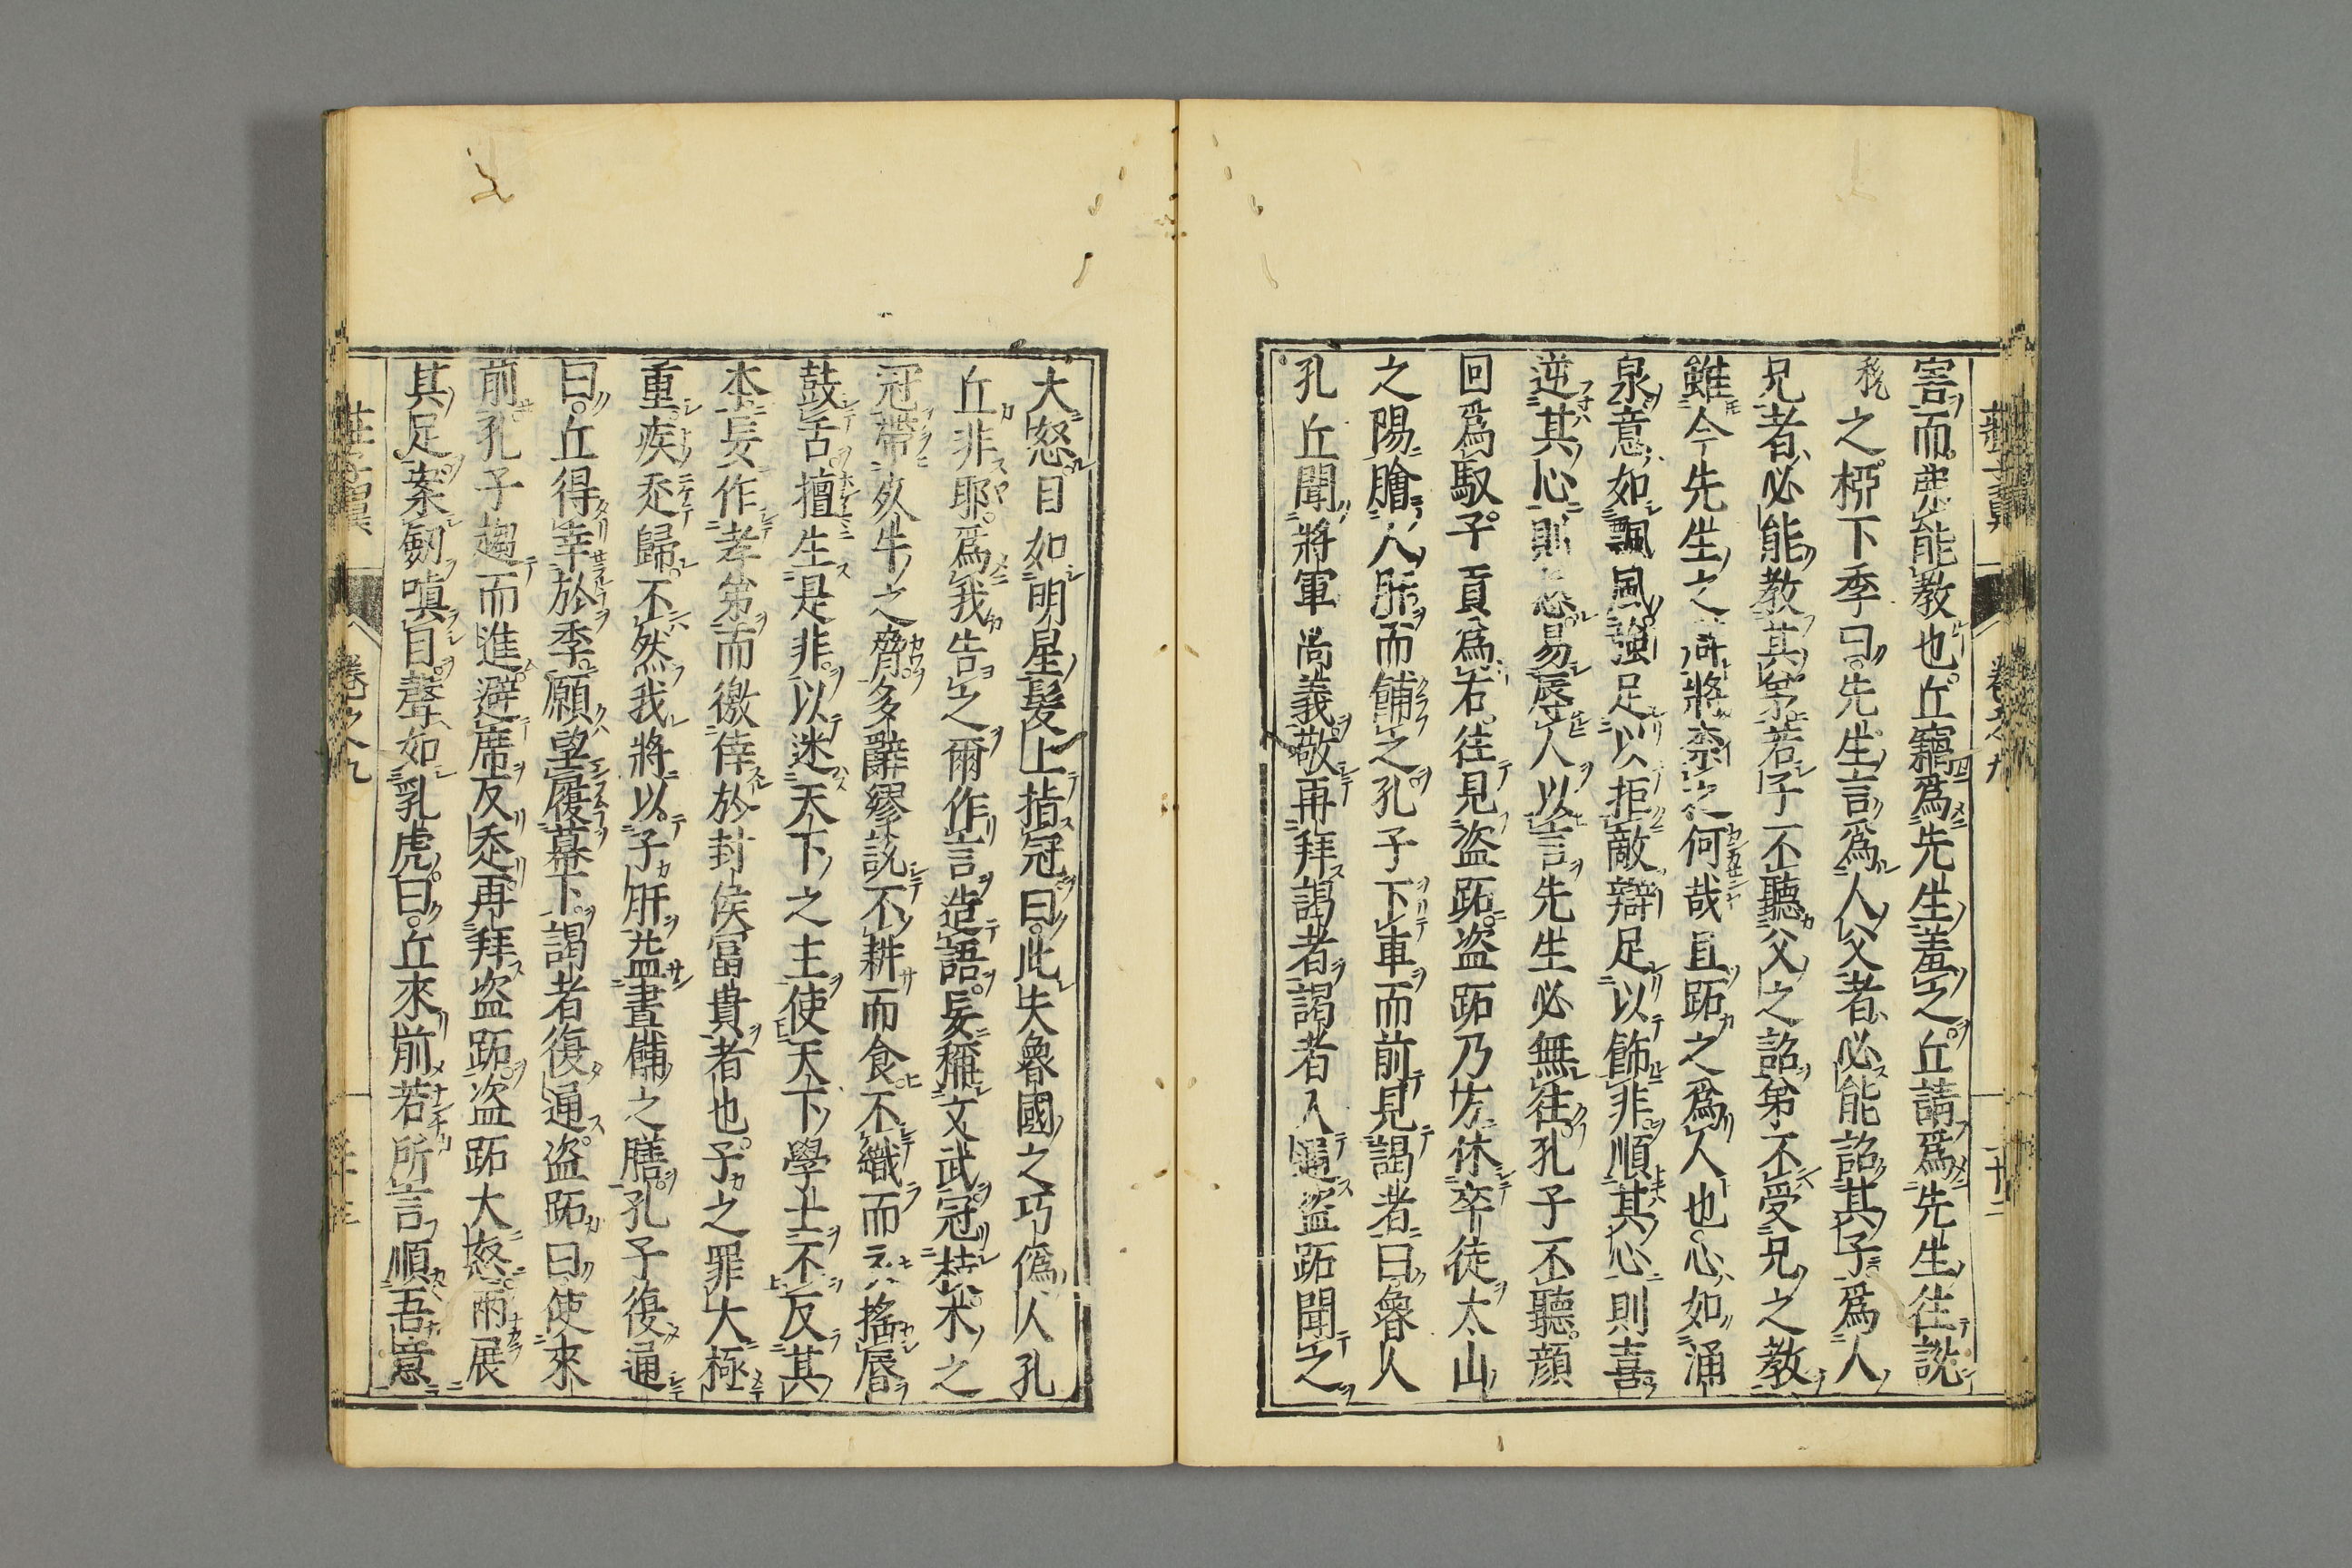 害而弗能教也丘竊爲先生羞之丘請爲先生往說
之柳下季曰先生言爲人父者必能詔其子爲人
兄者必能教其弟若子不聽父之詔弟不受兄之教
雖今先生之辯將柰之何哉且跖之爲人也心如涌
泉意如飄風強足以拒敵辯足以飾非順其心則喜
逆其心則怒易辱人以言先生必無往孔子不聽顔
回爲馭子貢爲右往見盜跖盜跖乃方休卒徒太山
之陽膾人肝而餔之孔子下車而前見謁者曰魯人
孔丘聞將軍尚義敬再拜謁者謁者入通盜跖聞之
大怒目如明星髮上指冠曰此夫魯國之巧僞人孔
丘非耶爲我告之爾作言造語妄稱文武冠枝木之
冠帶死牛之脅多辭繆說不耕而食不織而衣搖唇
鼓舌擅生是非以迷天下之主使天下學士不反其
本妄作孝弟而徼倖於封侯富貴者也子之罪大極
重疾走歸不然我將以子肝益晝餔之膳孔子復通
曰丘得幸於季願望履幕下謁者復通盜跖曰使來
前孔子趨而進避席反走再拜盜跖盜跖大怒兩展
其足案劒嗔目聲如乳虎曰丘來前若所言順吾意
卷之九